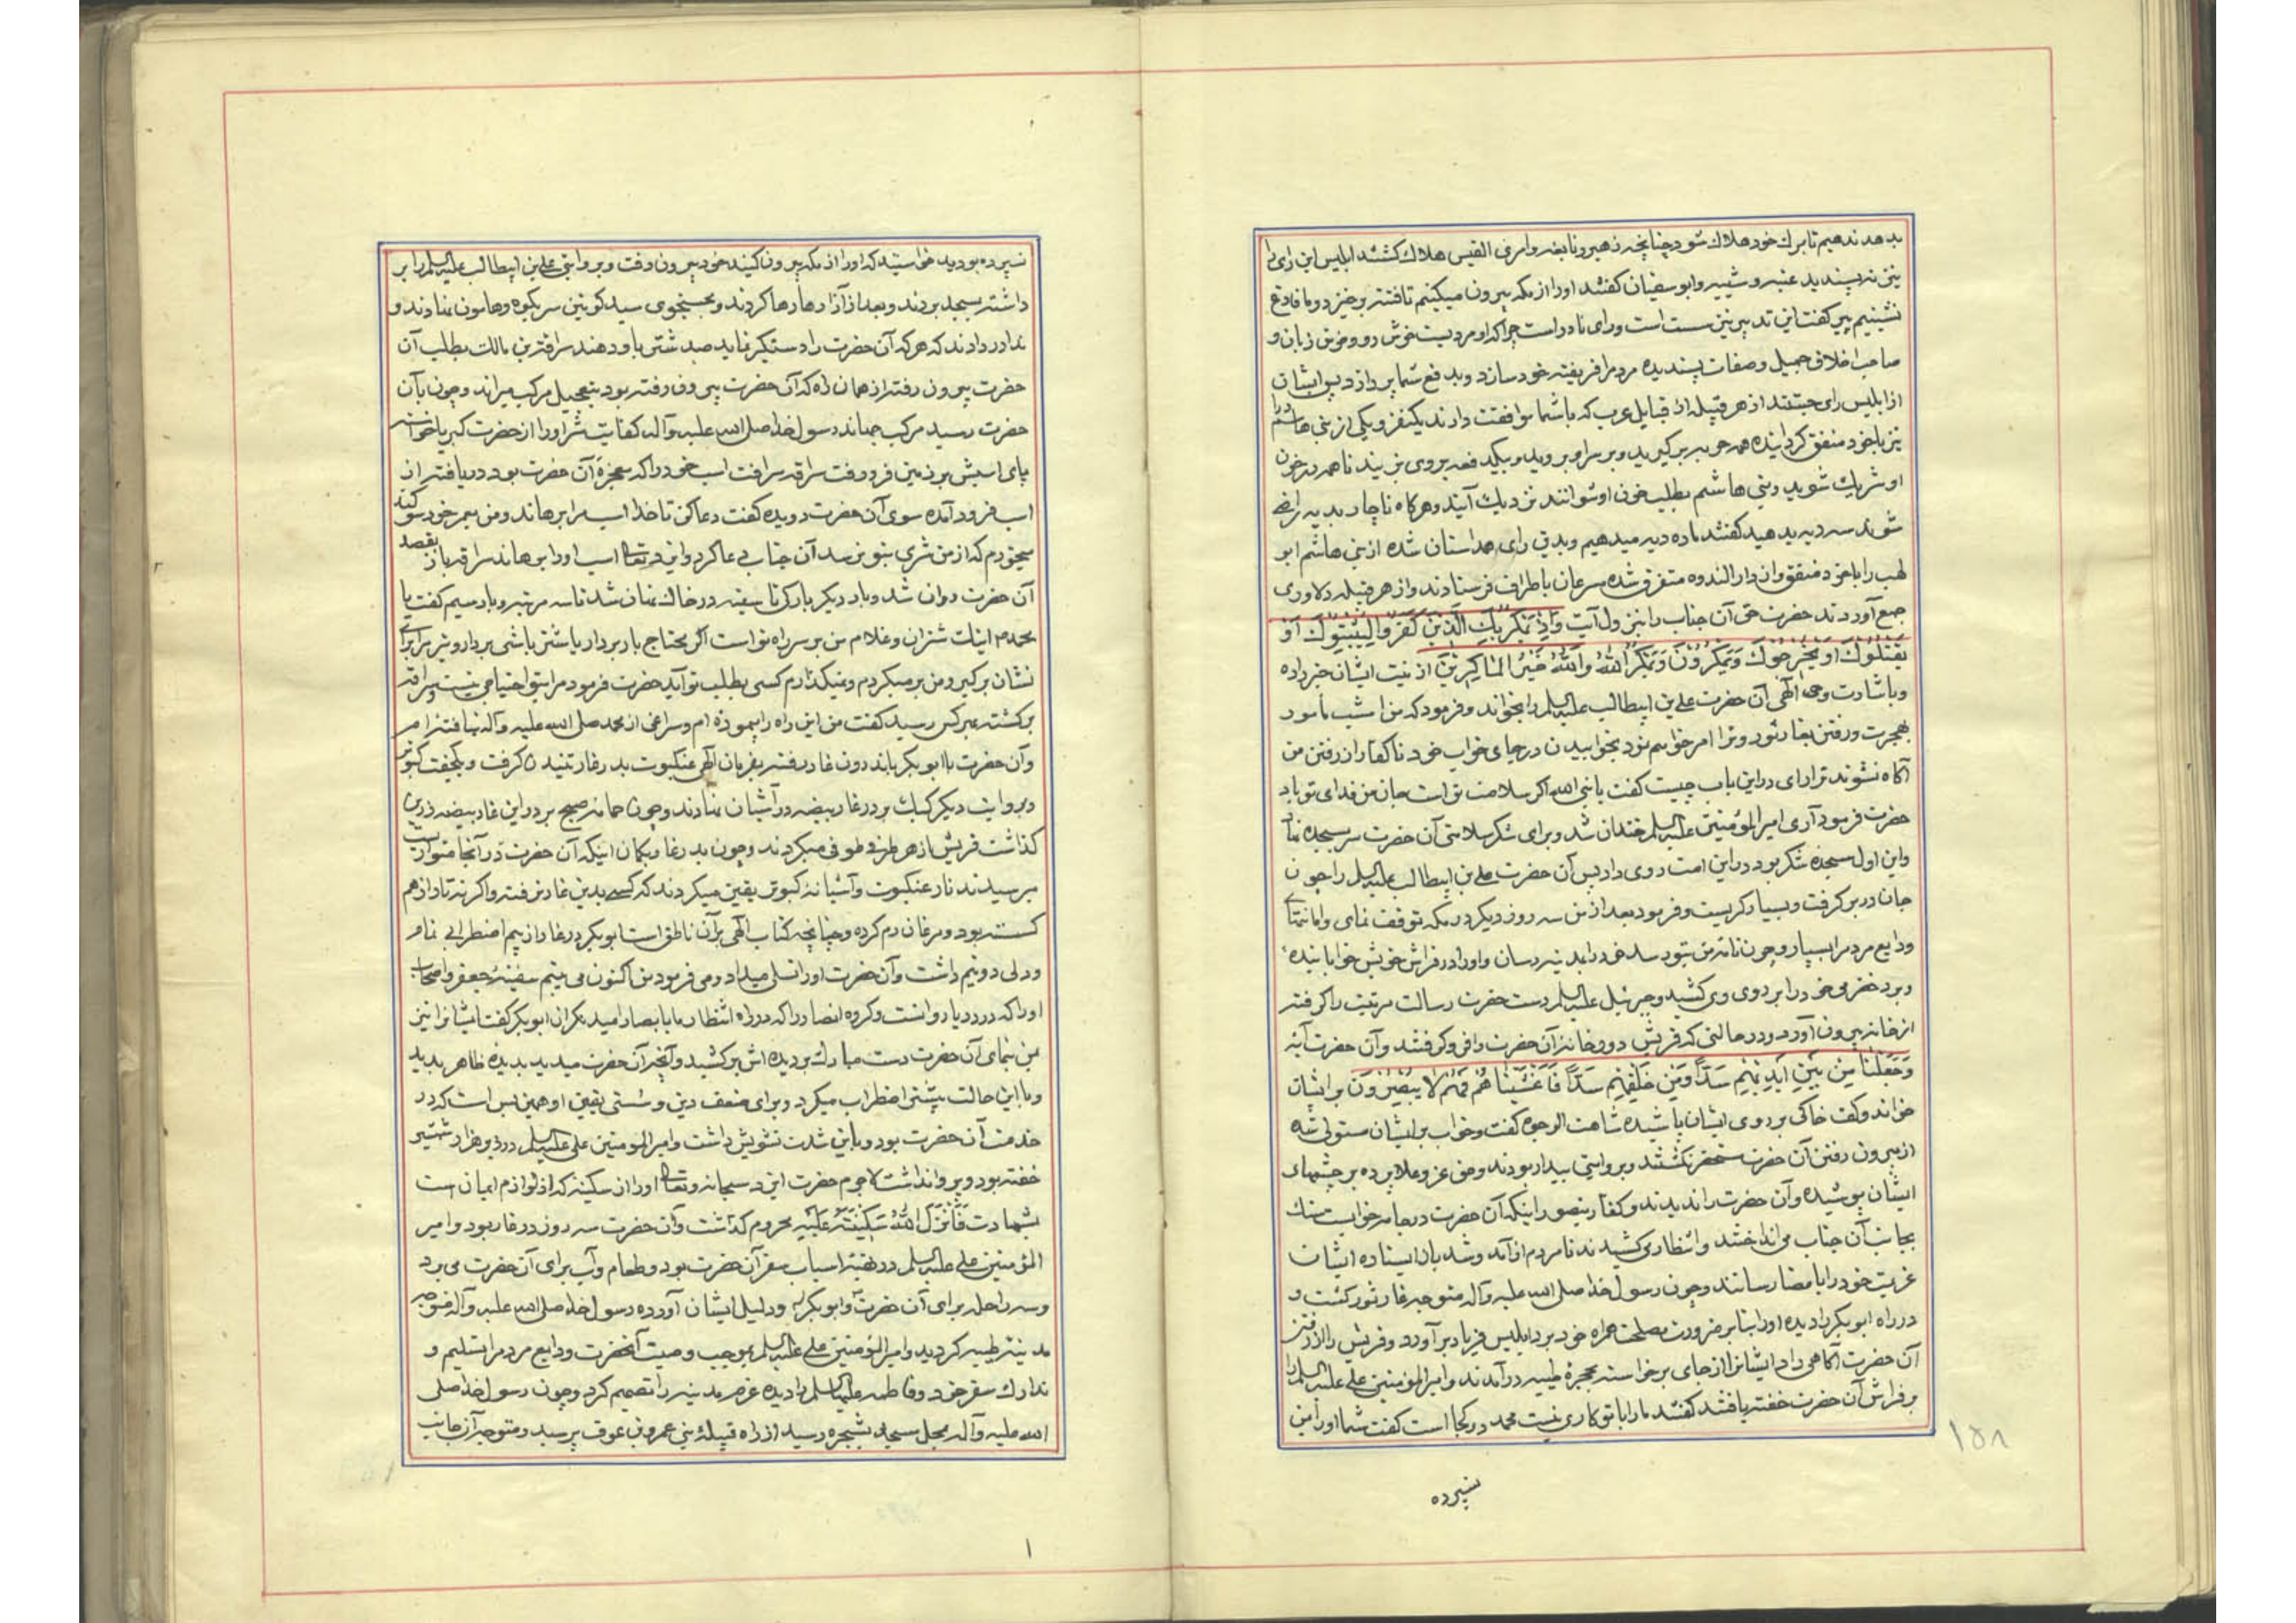 بدهد ندهیم تا بمرك خود هلاك شود چنانچه زهیر و نابغه و امرئ القیس هلاك گشتند ابلیس این رای را
نیز نپسندید عتبه و شیبه و ابو سفیان گفتند او را از مکه بیرون میکنیم تا فتنه برخیزد و ما فارغ
نشینیم پیر گفت این تدبیر نیز سست است و رای نادر است چرا که او مردیست خوش رو و خوش زبان و
صاحب اخلاق جمیل و صفات پسندیده مردم را فریفته خود سازد و بدفع شما پردازد پس ایشان
از ابلیس رای جستند از هر قبیله از قبایل عرب که با شما موافقت دارند یکنفر و یکی از بنی هاشم را
نیز با خود متفق کردانیده همه حربه برگیرید و بر سر او بروید و بیکدفعه بر وی بزنید تا همه در خون
او شریك شوید و بنی هاشم بطلب خون او نتوانند نزدیك آیند و هرکاه ناچار بدیه راضی
شوند سه دیه بدهید گفتند ما ده دیه میدهیم و بدین رای همداستان شده از بنی هاشم ابو
لهب را با خود متفق و از دار الندوه متفرق شده سرعان باطراف فرستادند و از هر قبیله دلاوری
جمع آوردند حضرت حق آن جناب را بنزول آیت وَاِذْ یَمْکُرُ بِكَ الَّذینَ کَفَرُوا لِیُثْبِتُوكَ اَوْ
یَقْتُلُوكَ اَوْ یُخْرِجُوكَ وَیَمْکُرُونَ وَیَمْکُرُ اللّٰهُ وَاللّٰهُ خَیْرُ الْمَاکِرینَ از نیت ایشان خبر داده
و باشارت وحی الهی آن حضرت علی بن ابیطالب علیه السلم را بخواند و فرمود که من امشب مامور
بهجرت و رفتن بغار ثور و ترا امر خواهم نمود بخوابیدن در جای خواب خود تا کفار از رفتن من
آگاه نشوند ترا رای در این باب چیست گفت یا نبی الله اگر سلامت تو است جان من فدای تو باد
حضرت فرمود آری امیر المؤمنین علیه السلم خندان شد و برای شکر سلامتی آن حضرت سر بسجده نهاد
و این اول سجده شکر بود در این امت روی داد پس آن حضرت علی بن ابیطالب علیه السلم را چون
جان در بر گرفت و بسیار گریست و فرمود بعد از من سه روز دیگر در مکه توقف نمای و امانتهای
ودایع مردم را بسپار و چون نامه من بتو رسد خود را بمدینه رسان و او را در فراش خویش خوابانیده
و برد خضرمی خود را بر روی وی کشید و جبرئیل علیه السلم دست حضرت رسالت مرتبت را گرفته
از خانه بیرون آورد و در حالتی که قریش دور خانه آن حضرت را فرو گرفتند و آن حضرت آیه
وَجَعَلْنَا مِنْ بَیْنِ اَیْدِیْهِمْ سَدًّا وَمِنْ خَلْفِهِمْ سَدًّا فَاَغْشَیْنَاهُمْ فَهُمْ لَا یُبْصِرُونَ بر ایشان
خواند و کف خاکی بر روی ایشان پاشیده شاهت الوجوه گفت و خواب بر ایشان مستولی شد
از بیرون رفتن آن حضرت مستحضر نگشتند و بروایتی بیدار بودند و حق عز و علا پرده بر چشمهای
ایشان پوشیده و آن حضرت را ندیدند و کفار بتصور اینکه آن حضرت در جامه خوابست سنك
بجانب آن جناب می انداختند و انتظار می کشیدند تا مردم از آمد و شد باز ایستاده ایشان
عزیمت خود را بامضا رسانند و چون رسول خدا صلی الله علیه و آله متوجه غار ثور گشت و
در راه ابو بکر را دیده او را بنا بر ضرورت مصلحت همراه خود برد ابلیس فریاد برآورد و قریش را از رفتن
آن حضرت آگاهی داد ایشان از جای برخواسته بحجرۀ طیبه درآمدند و امیر المؤمنین علی علیه السلم را
بر فراش آن حضرت خفته یافتند گفتند ما را با تو کاری نیست محمد در کجا است گفت شما او را بمن
سپرده
۱۵۸
سپرده بودید خواستید که او را از مکه بیرون کنید خود بیرون رفت و بروایتی علی بن ابیطالب علیه السلم را بر
داشته بمسجد بردند و بعد از آزارها رها کردند و بجستجوی سید کونین سر بکوه و هامون نهادند و
ندا دردادند که هر که آن حضرت را دستگیر نماید صد شتر باو دهند سراقة بن مالك بطلب آن
حضرت بیرون رفته از همان راه که آن حضرت بیرون رفته بود بتعجیل مرکب میراند و چون بآن
حضرت رسید مرکب جهاند رسول خدا صلی الله علیه و آله کفایت شر او را از حضرت کبریا خواسته
پای اسبش بر زمین فرو رفت سراقه سرافت اسب خود را که معجزه آن حضرت بود دریافته از
اسب فرود آمده سوی آن حضرت دویده گفت دعا کن تا خدا اسب مرا برهاند و من بعمر خود سوگند
میخورم که از من شری بتو نرسد آن جناب دعا کرد و ایزد تعالی اسب او را برهاند سراقه باز بقصد
آن حضرت روان شد و بار دیگر بارگی تا سینه در خاك نهان شد تا سه مرتبه و بار سیم گفت یا
محمد اینك شتران و غلام من بر سر راه تو است اگر محتاج باربردار یا شتر باشی بردار و تیر مرا برای
نشان برگیر و من برمیگردم و نمیگذارم کسی بطلب تو آید حضرت فرمود مرا بتو احتیاجی نیست و سراقه
برگشته بهر کس رسید گفت من این راه را پیموده ام و سراغی از محمد صلی الله علیه و آله نیافته ام
و آن حضرت با ابو بکر باندرون غار رفته بفرمان الهی عنکبوت بدر غار تنیدن گرفت و یکجفت کبوتر
و بروایت دیگر کبك بر در غار بیضه در آشیان نهادند و چون حمامه صبح بر در این غار بیضه زرین
گذاشت قریش از هر طرف و طوفی میکردند و چون بدر غار بگمان اینکه آن حضرت در آنجا متواریست
میرسیدند تار عنکبوت و آشیانه کبوتر یقین میکردند که کسی بدین غار نرفته و اگر نه تار از هم
گسسته بود و مرغان رم کرده و چنانچه کتاب الهی بر آن ناطق است ابو بکر در غار از بیم اضطرابی تمام
و دلی دونیم داشت و آن حضرت او را تسلی میداد و می فرمود من اکنون می بینم سفینۀ جعفر و اصحاب
او را که در دریا روانست و گروه انصار را که در راه انتظار ما با بصار امید نگران ابو بکر گفت ایشان را نیز
بمن بنمای آن حضرت دست مبارك بر دیده اش برکشید و آنچه آن حضرت میدید بدیده ظاهر بدید
و با این حالت بیشتر اضطراب میکرد و برای ضعف دین و سستی یقین او همین بس است که در
خدمت آن حضرت بود و باین شدت تشویش داشت و امیر المومنین علی علیه السلم در زیر هزار شمشیر
خفته بود و پروا نداشت لاجرم حضرت ایزد سبحانه و تعالی او را از سکینه که از لوازم ایمان است
بشهادت فَاَنْزَلَ اللّٰهُ سَکِینَتَهُ عَلَیْهِ محروم گذاشت و آن حضرت سه روز در غار بود و امیر
المؤمنین علی علیه السلم در تهیۀ اسباب سفر آن حضرت بود و طعام و آب برای آن حضرت می برد
و سه راحله برای آن حضرت و ابو بکر و دلیل ایشان آورده رسول خدا صلی الله علیه و آله متوجه
مدینه طیبه گردید و امیر المؤمنین علی علیه السلم بموجب وصیت آنحضرت ودایع مردم را تسلیم و
تدارك سفر خود و فاطمه علیها السلم را دیده عزم مدینه را تصمیم کرد و چون رسول خدا صلی
الله علیه و آله بمحل مسجد شجره رسید از راه قبیلۀ بنی عمرو بن عوف پرسید و متوجه آن جانب
۱